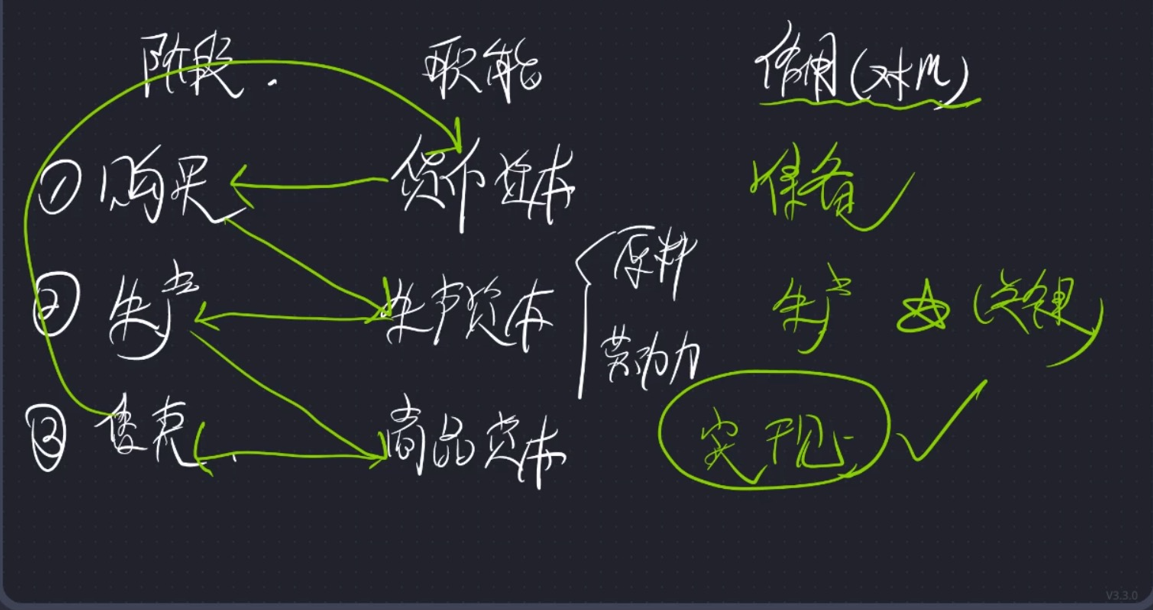 阶段. 职能 作用(对m)
① 购买 货币资本 准备
原料
② 生产 生产资本 生产
劳动力
③ 售卖 商品资本 实现
V3.3.0